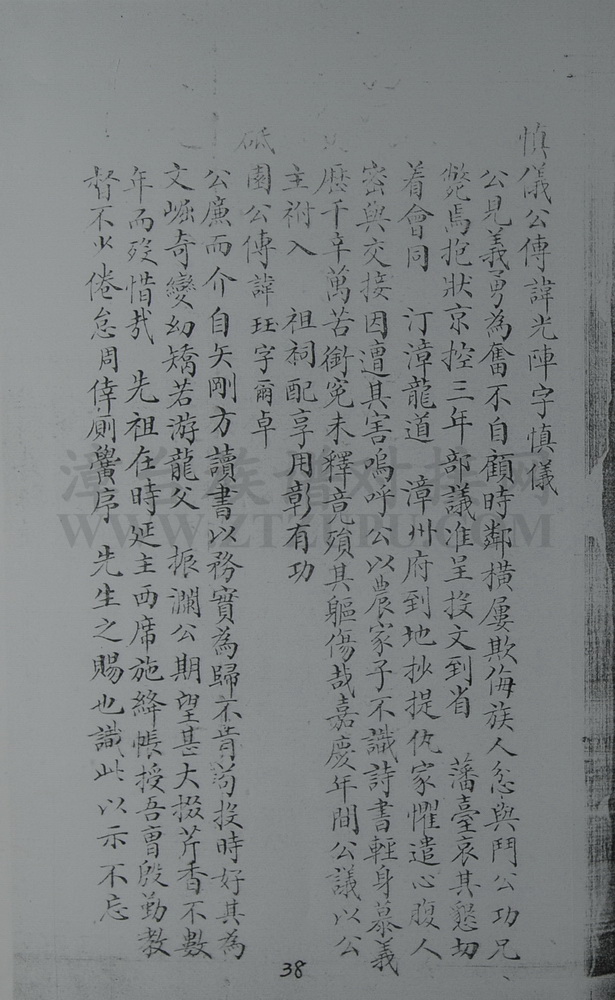 慎儀公傳諱光陣字慎儀
公見義勇為奮不自顧時鄰橫屢欺侮族人忿與鬥公功兄、
斃焉抱狀京控三年部議准呈投文到省 藩臺哀其懇切
着會同 汀漳龍道 漳州府到地抄提仇家懼遣心腹人
密與交接因遭其害嗚呼公以農家子不識詩書輕身慕義
歷千辛萬苦銜冤未釋竟殞其軀傷哉嘉慶年間公議以公
主祔入 祖祠配享用彰有功
砥園公傳諱玨字爾卓
公廉而介自矢剛方讀書以務實為歸不肯苟投時好其為
文崛奇變幻矯若游龍父 振瀾公期望甚大掇芹香不數
年而歿惜哉 先祖在時延主西席施絳帳授吾曹殷勤教
督不少倦怠周倖廁黌序 先生之賜也識此以示不忘
38
WWW.ZTZUPU.COM